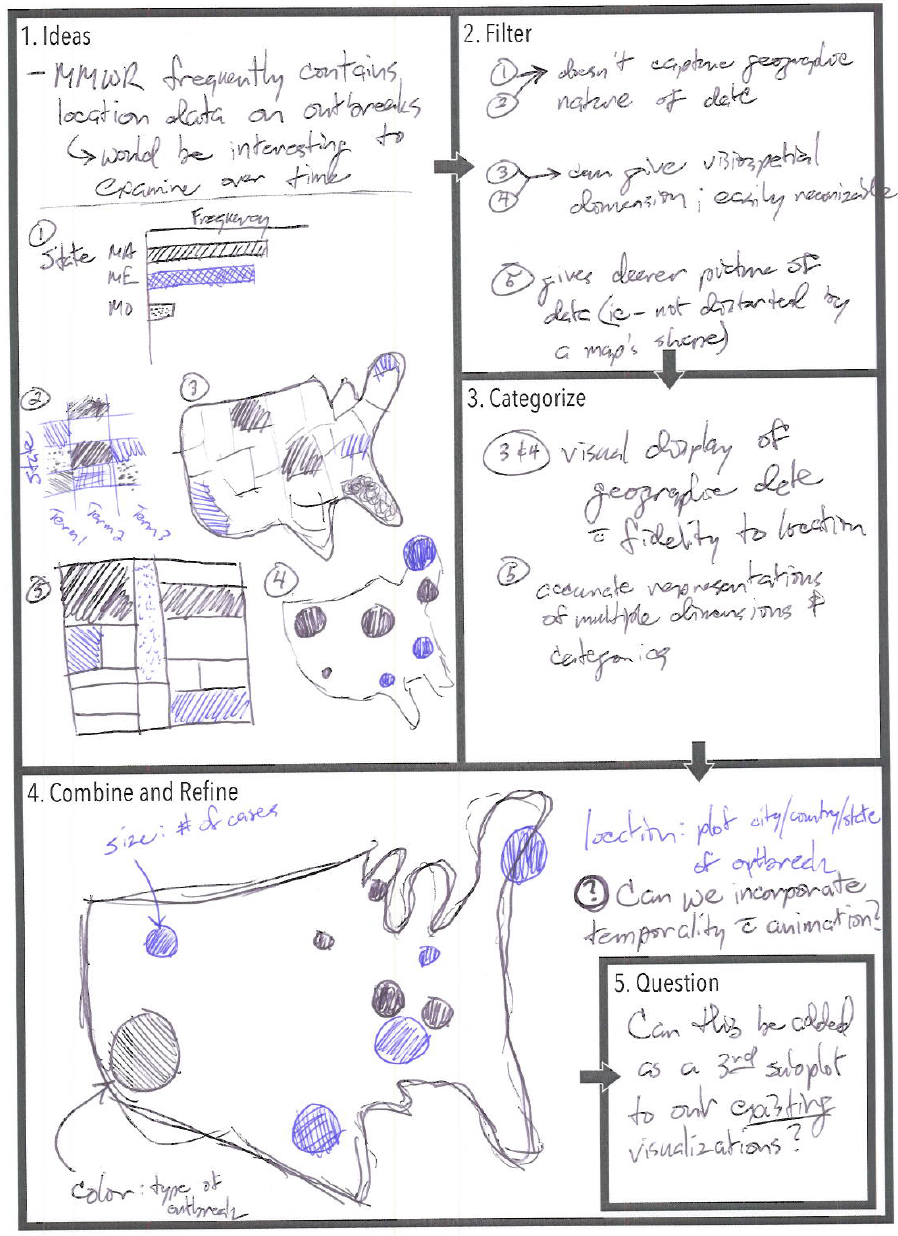 1. Ideas
- MMWR frequently contains
location data on outbreaks
↳ would be interesting to
examine over time
Frequency
①
State MA
ME
MO
②
State
Term1
Term2
Term3
③
⑤
④
2. Filter
① → doesn't capture geographic
② nature of data
③ → can give visiospatial
④ dimension; easily recognizable
⑤ gives clearer picture of
data (ie - not distorted by
a map's shape)
3. Categorize
3 & 4 visual display of
geographic data
c̄ fidelity to location
⑤ accurate representations
of multiple dimensions &
categories
4. Combine and Refine
size: # of cases
color: type of
outbreak
location: plot city/country/state
of outbreak
? Can we incorporate
temporality c̄ animation?
5. Question
Can this be added
as a 3rd subplot
to our existing
visualizations?